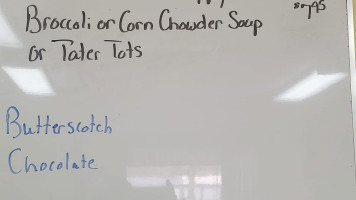 Broccoli or Corn Chowder Soup
or Tater Tots
Butterscotch
Chocolate